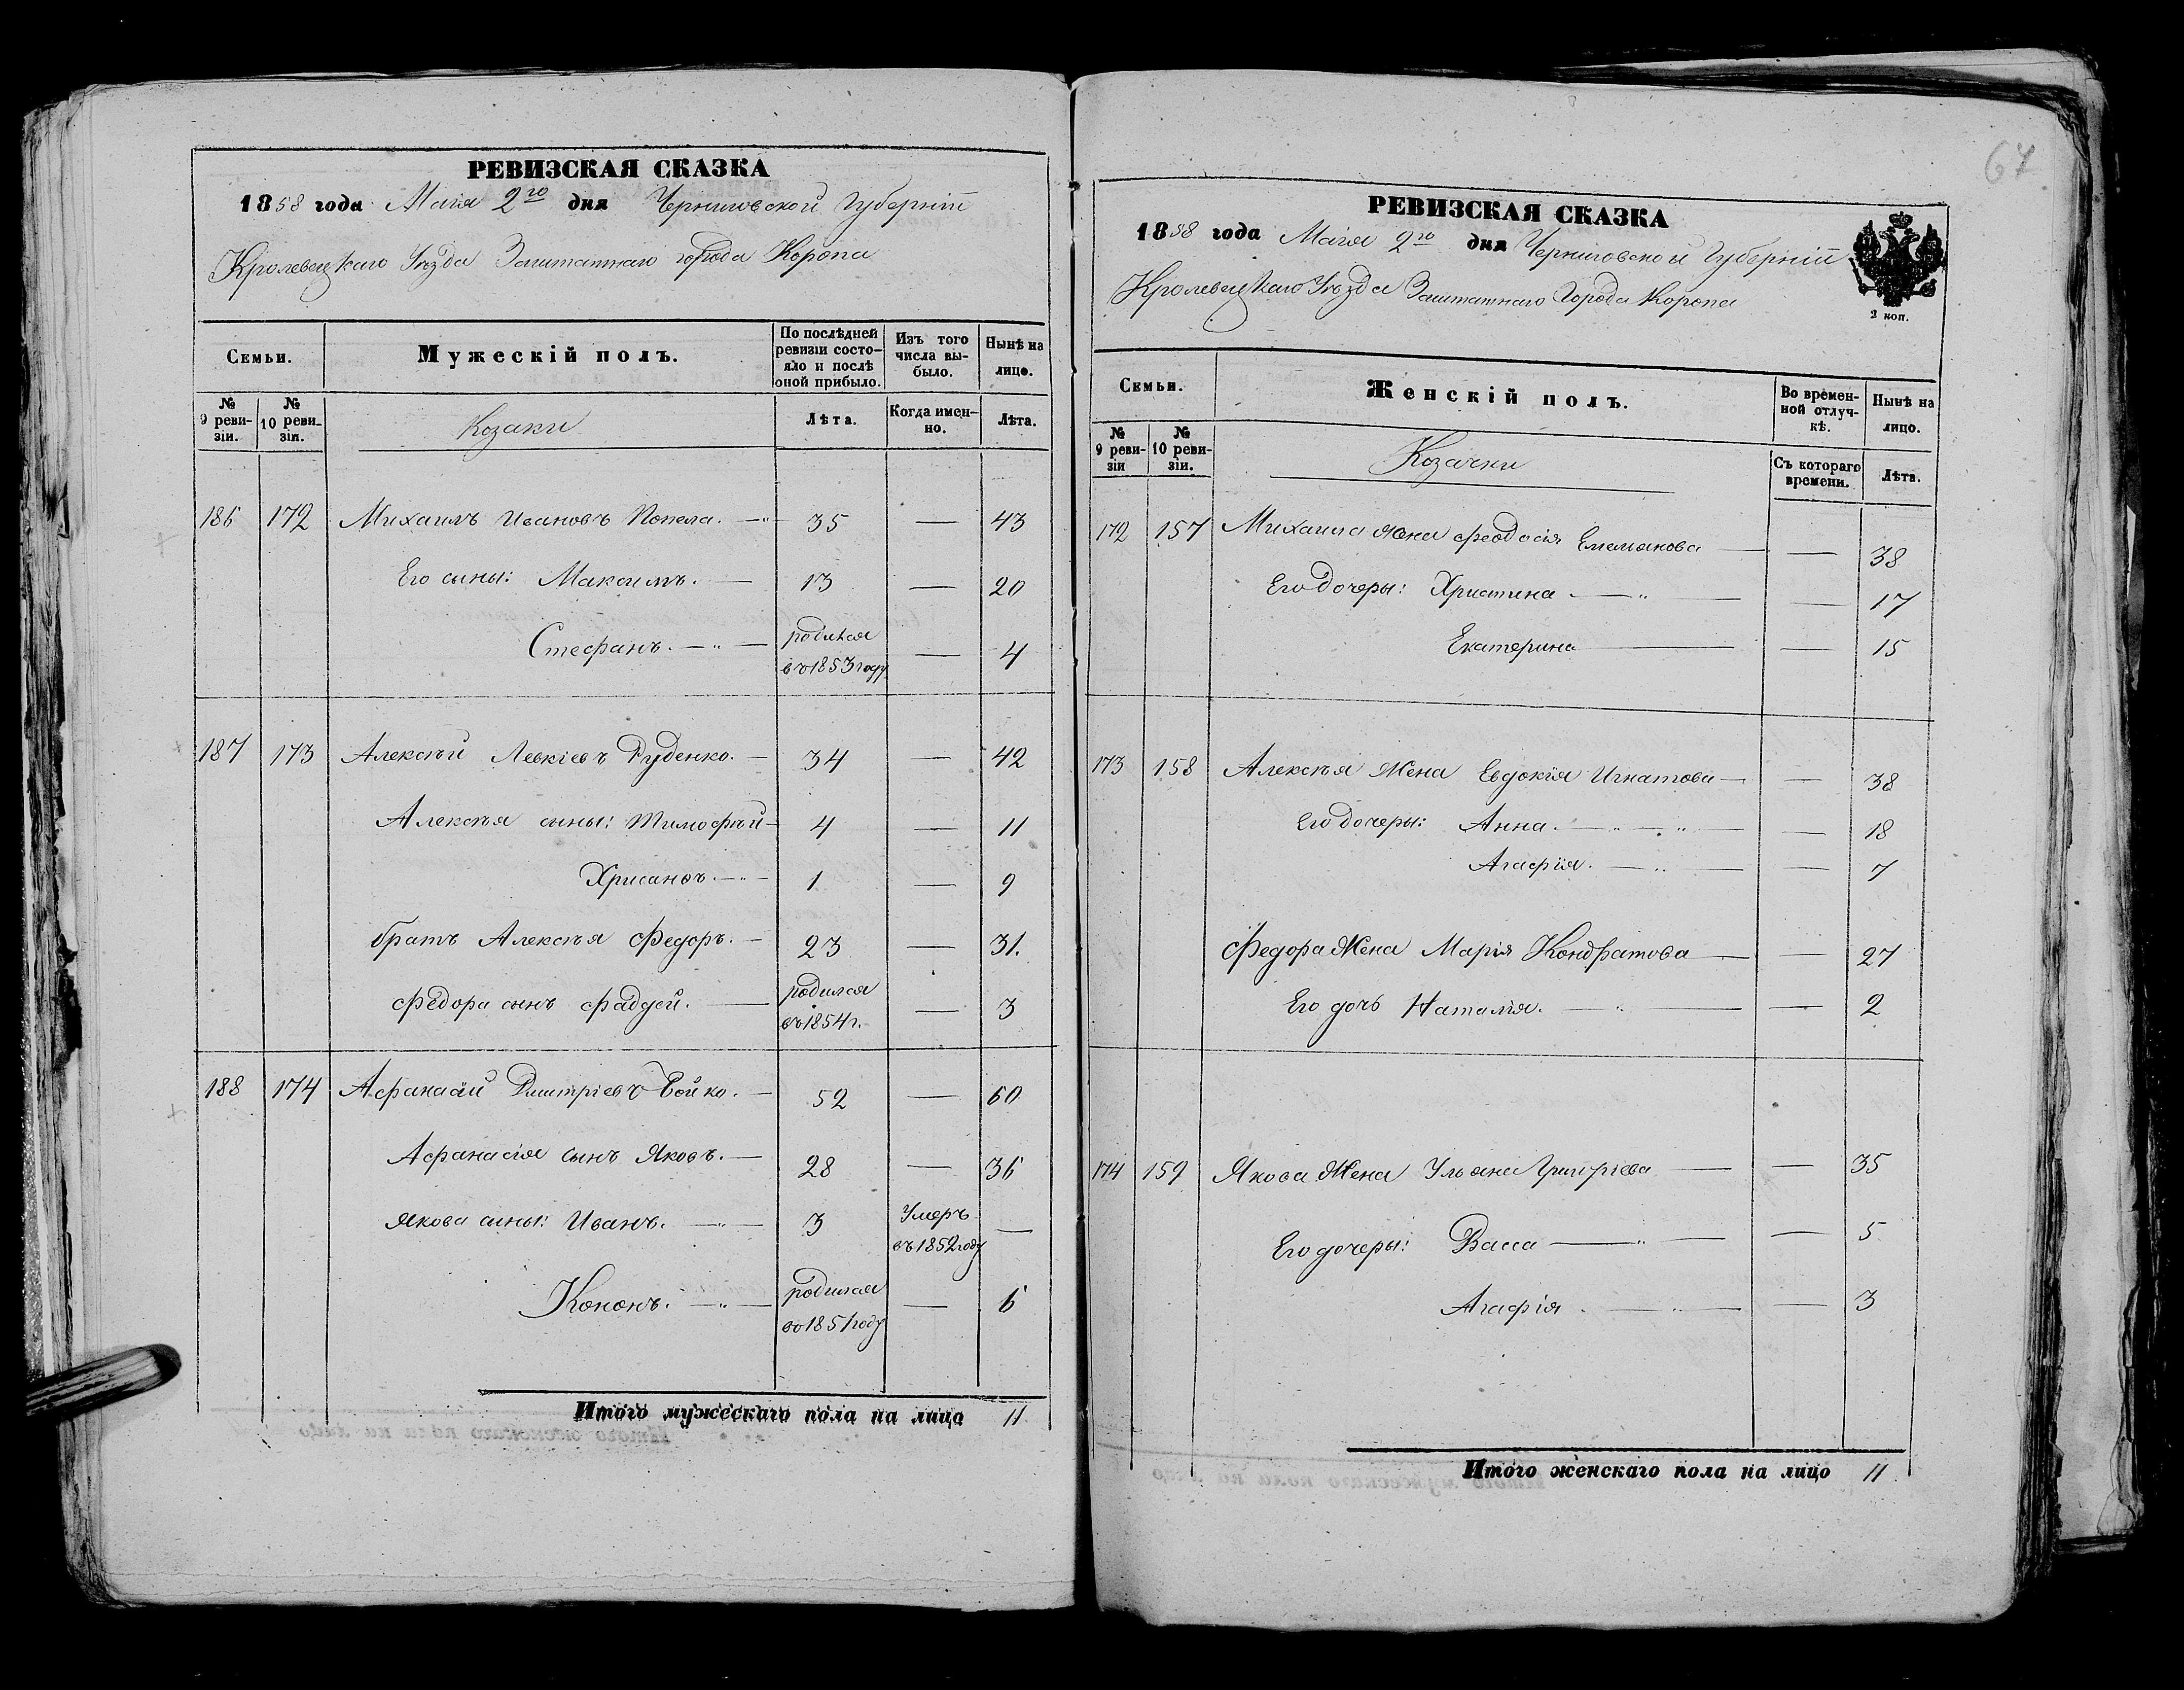 РЕВИЗСКАЯ СКАЗКА
1858 года Маія 2го дня Черниговской Губерніи
Кролевецкаго Уѣзда Заштатнаго города Коропа
Семьи. Мужескій полъ. По послѣдней ревизіи состояло и послѣ оной прибыло. Изъ того числа выбыло. Нынѣ на лицо.
№ 9 ревизіи. № 10 ревизіи. Козаки Лѣта. Когда именно. Лѣта.
186 172 Михаилъ Ивановъ Попела. — 35 — 43
Его сыны: Максимъ. — 13 — 20
Стефанъ. — родился въ 1853 году — 4
187 173 Алексѣй Левкіевъ Руденко. — 34 — 42
Алексѣя сыны: Тимофѣй — 4 — 11
Хрисанфъ. — 1 — 9
братъ Алексѣя Федоръ. — 23 — 31.
Федора сынъ Фаддей. — родился въ 1854 г. — 3
188 174 Афанасій Дмитріевъ Бойко. — 52 — 60
Афанасія сынъ Яковъ. — 28 — 36
Якова сыны: Иванъ. — 3 Умеръ въ 1852 году —
Кононъ. — родился въ 1851 году — 6
Итого мужескаго пола на лицо 11
67
РЕВИЗСКАЯ СКАЗКА
1858 года Маія 2го дня Черниговской Губерніи
Кролевецкаго Уѣзда Заштатнаго Города Коропа
2 коп.
Семьи. Женскій полъ. Во временной отлучкѣ. Нынѣ на лицо.
№ 9 ревизіи № 10 ревизіи. Козачки Съ котораго времени. Лѣта.
172 157 Михаила жена Феодосія Емельянова — — 38
Его дочеры: Христина — — 17
Екатерина — — 15
173 158 Алексѣя Жена Евдокія Игнатова — — 38
Его дочеры: Анна. — — 18
Агафія. — — 7
Федора Жена Марія Кондратова — — 27
Его дочь Наталія. — — 2
174 159 Якова Жена Ульяна Григоріева — — 35
Его дочеры: Васса — — 5
Агафія — — 3
Итого женскаго пола на лицо 11